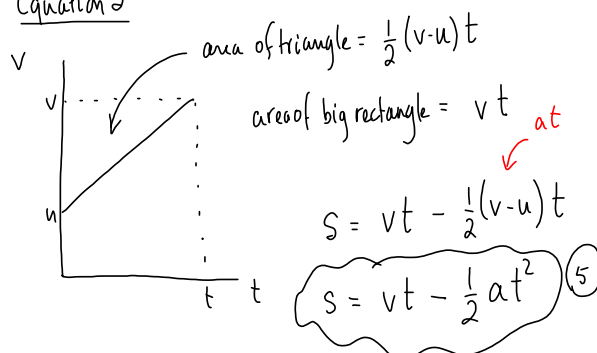 Equation 2
area of triangle = ½ (v-u) t
V
v
area of big rectangle = vt
at
u
s = vt - ½ (v-u) t
s = vt - ½ at²
5
t
t